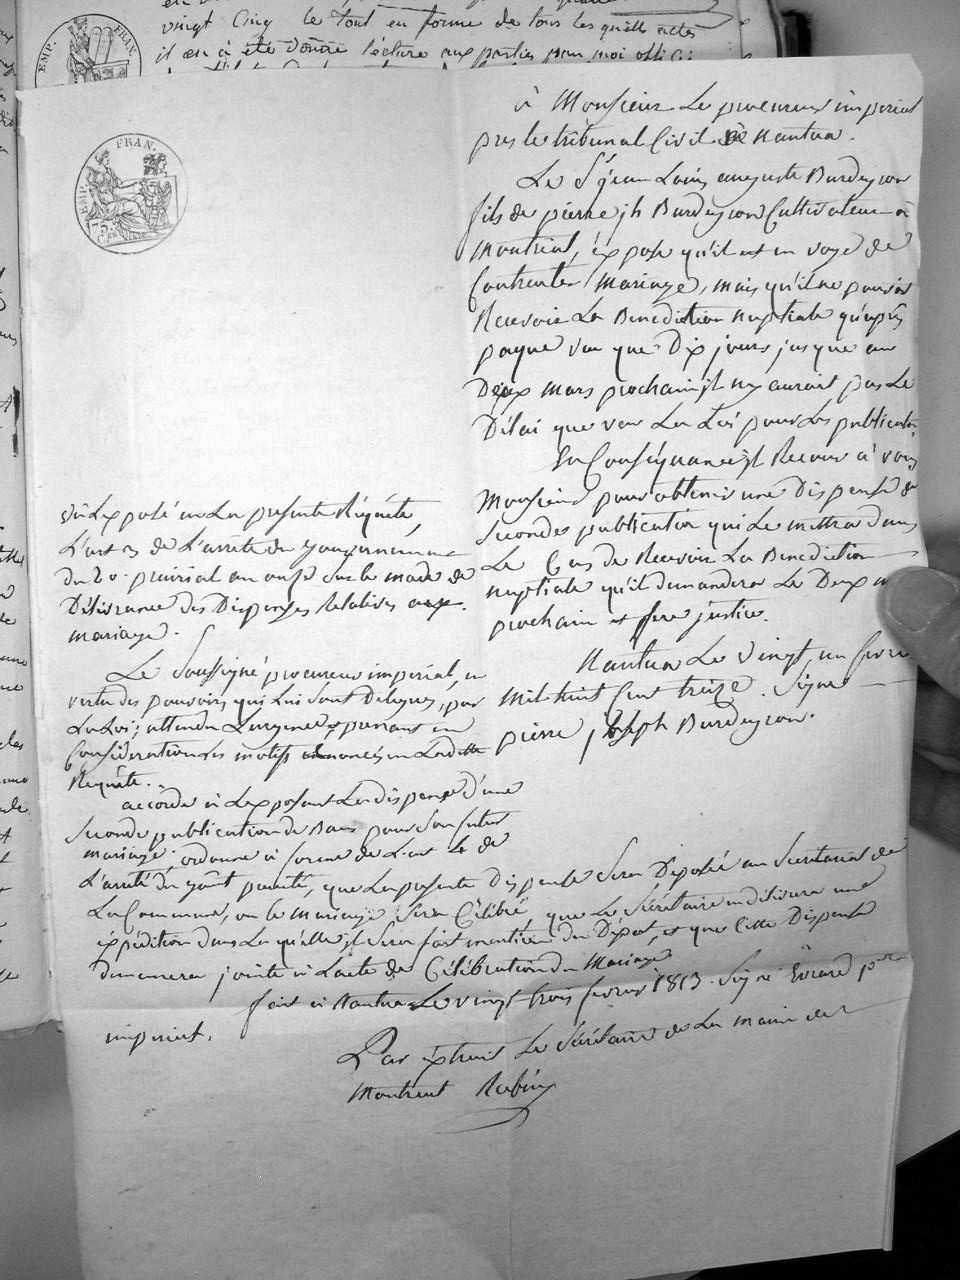 vingt Cinq le tout en forme de tous lesquels actes
il en a été donné lecture aux parties par moi offici
EMP. FRAN.
EMP. FRAN.
75
à Monsieur Le procureur imperial
pres le tribunal Civil de Nantua.
Le Sr jean Louis auguste Burdeyron
fils de pierre jh Burdeyron Cultivateur à
Montréal, expose qu'il est en voye de
Contracter Mariage, mais qu'il ne pouvoir
Recevoir La Benediction nuptiale qu'après
paque vu que Dix jours jusque au
Deux mars prochain il ny auroit pas Le
Délai que veu La Loi pour Les publicat
En Conséquance il Recour à vous
Monsieur pour obtenir une Dispense de
Seconde publication qui Le mettra dans
Le Cas de Recevoir La Benediction
nuptiale qu'il demandera Le Deux m
prochain et fere justice.
Nantua Le vingt un fevrie
Mil huit Cent treize. Signé
pierre joseph Burdeyron.
Vu L'exposé en La présente Réquête,
L'art 3 de L'arrêté du Gouvernement
du 20. prairial an onze Sur le mode de
Délivrance des Dispenses Relatives aux
mariage.
Le Soussigné procureur imperial, en
vertu des pouvoirs qui Lui Sont Délégués, par
La Loi; attendu L'urgence & prenant en
Considération Les motifs énoncés en Ladite
Réquête.
accorde à L'exposant La dispense d'une
Seconde publication de Bans pour Son futur
mariage; ordonne à forme de L'art 4 de
L'arrêté du Gouvt précité, que La présente dispense Sera Déposée au Secretariat de
La Commune, ou le Mariage Sera Célébré, que Le Sécrétaire en délivrera une
expédition dans La qu'elle il Sera fait mention du Dépôt, et que Cette Dispense
demeurera jointe à L'acte de Célébration du Mariage
fait à Nantua Le vingt trois fevrier 1813. Signé Evrard pr
imperial.
Par extrait Le Sécrétaire de La mairie de
Montreal Robin